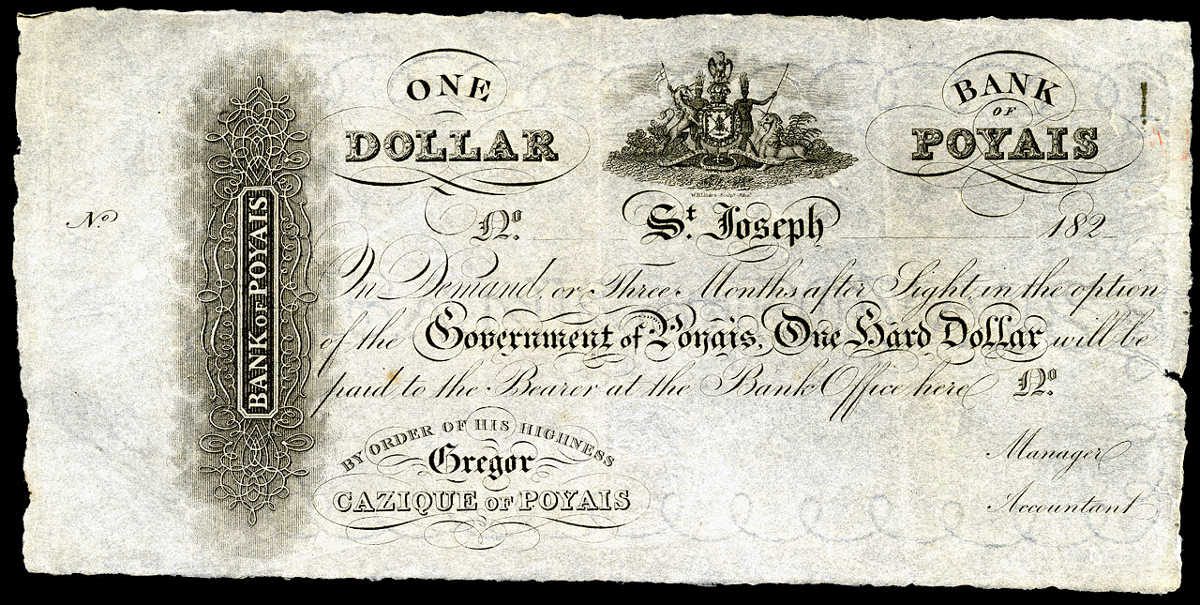 ONE
DOLLAR
BANK
OF
POYAIS
Nº
Nº.
St. Joseph
182
On Demand, or Three Months after Sight, in the option
of the Government of Poyais, One Hard Dollar will be
paid to the Bearer at the Bank Office here Nº.
BANK OF POYAIS
Manager
Accountant
BY ORDER OF HIS HIGHNESS
Gregor
CAZIQUE OF POYAIS